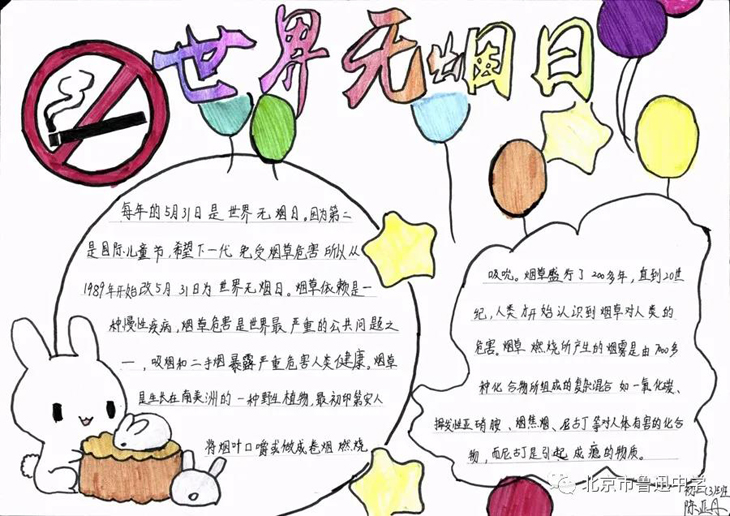 世界无烟日
每年的5月31日是世界无烟日。因为第二
是国际儿童节,希望下一代免受烟草危害所以从
1989年开始改5月31日为世界无烟日。烟草依赖是一
种慢性疾病,烟草危害是世界最严重的公共问题之
一,吸烟和二手烟暴露严重危害人类健康。烟草
是生长在南美洲的一种野生植物,最初印第安人
将烟叶口嚼或做成卷烟燃烧
吸吮。烟草盛行了200多年,直到20世
纪,人类才开始认识到烟草对人类的
危害。烟草燃烧所产生的烟雾是由7000多
种化合物所组成的复杂混合如一氧化碳、
挥发性亚硝胺、烟焦烟、尼古丁等对人体有害的化合
物,而尼古丁是引起成瘾的物质。
北京市鲁迅中学